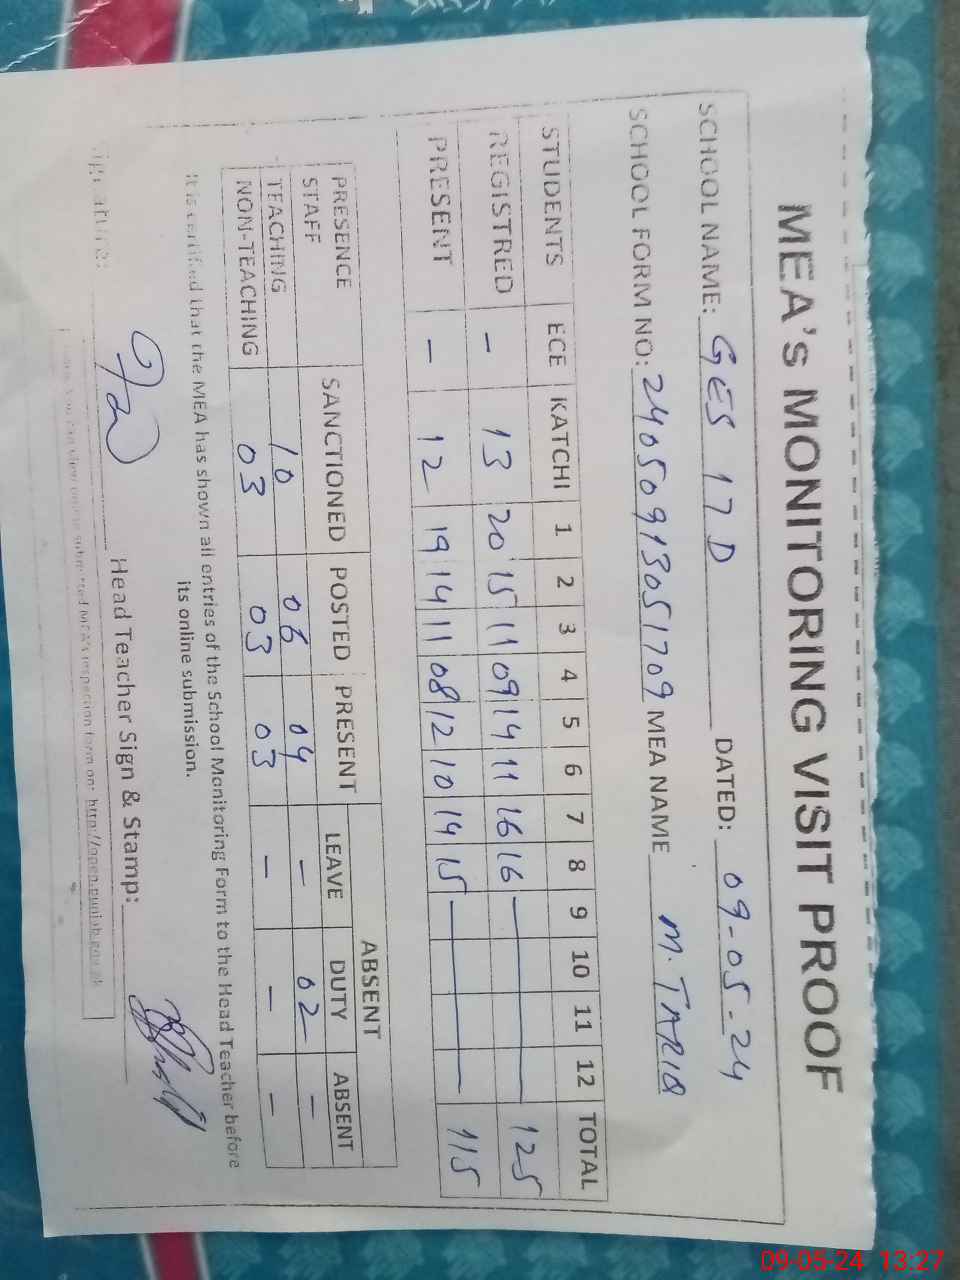 MEA's MONITORING VISIT PROOF
SCHOOL NAME: GES 17 D DATED: 09-05-24
SCHOOL FORM NO: 24050913051709 MEA NAME M. TARIQ
STUDENTS ECE KATCHI 1 2 3 4 5 6 7 8 9 10 11 12 TOTAL
REGISTRED - 13 20 15 11 09 14 11 16 16 125
PRESENT - 12 19 14 11 08 12 10 14 15 115
PRESENCE SANCTIONED POSTED PRESENT ABSENT
STAFF LEAVE DUTY ABSENT
TEACHING 10 06 04 - 02 -
NON-TEACHING 03 03 03 - - -
It is certified that the MEA has shown all entries of the School Monitoring Form to the Head Teacher before
its online submission.
Signature: Head Teacher Sign & Stamp:
You can view online submitted MEA's inspection form on: http://open.punjab.gov.pk
09-05-24 13:27